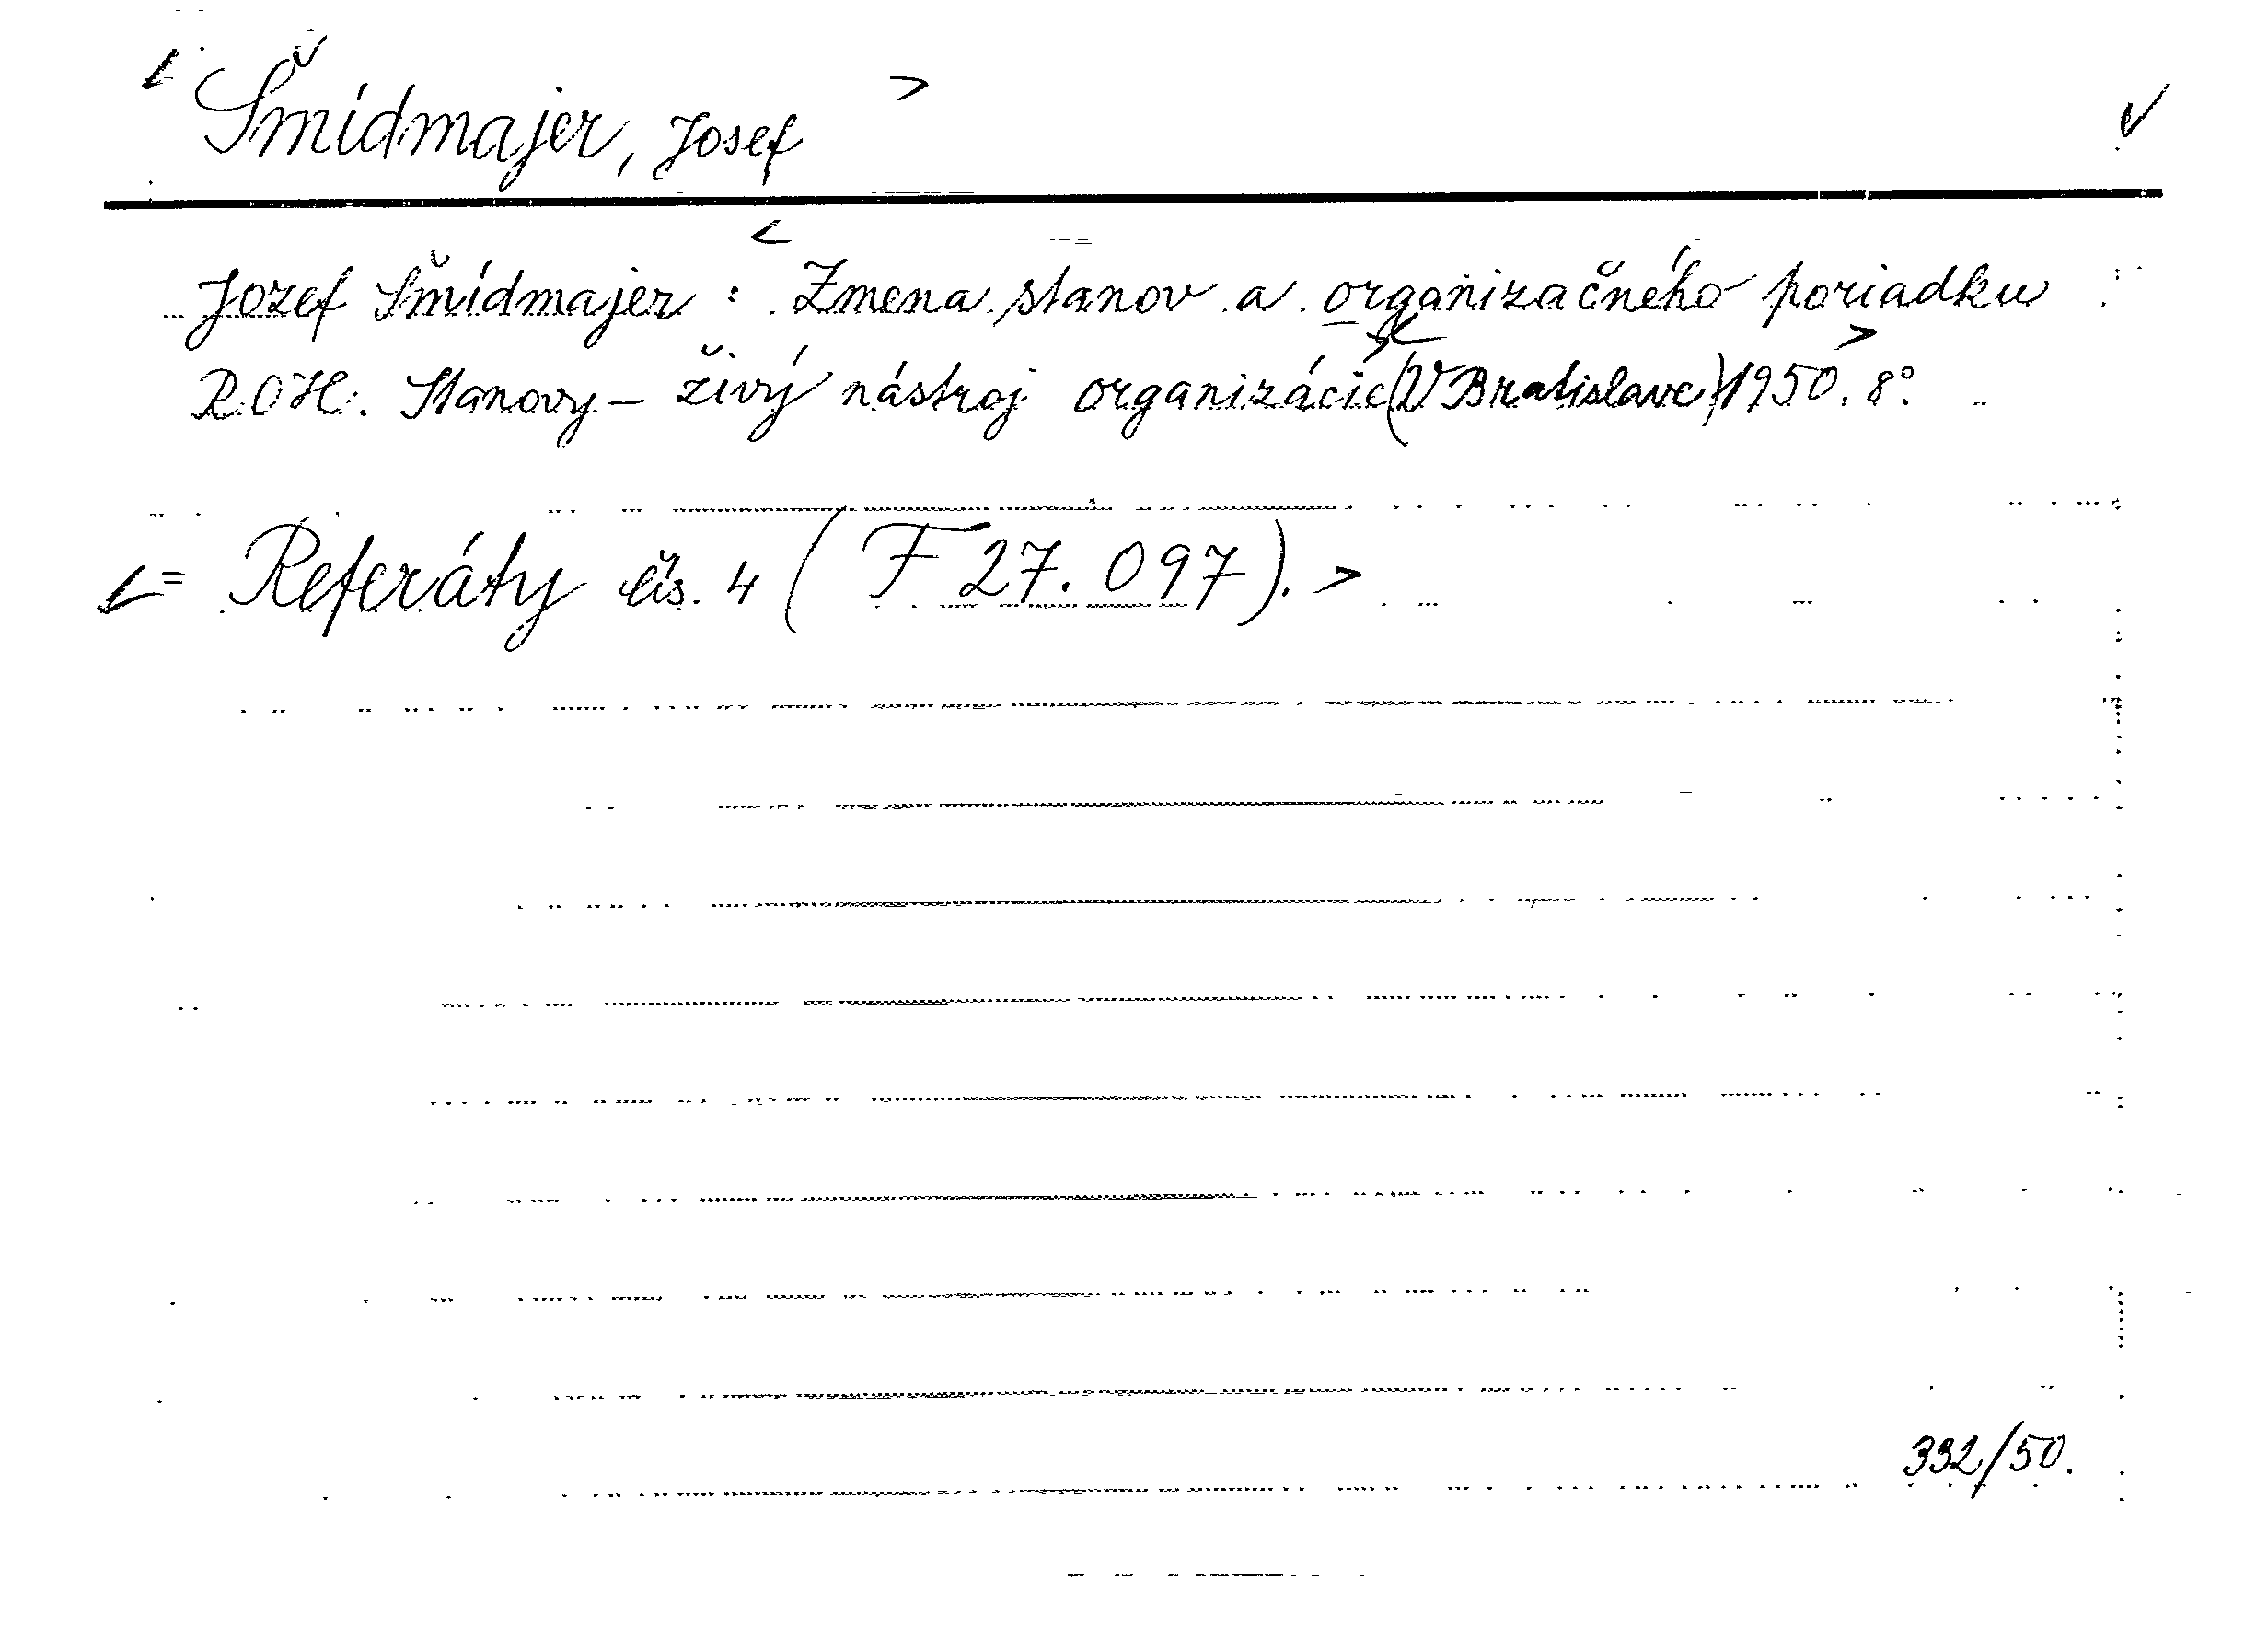 < Šmídmajer, Josef > ✓
Jozef Šmídmajer : < Zmena stanov a organizačného poriadku
ROH. Stanovy – živý nástroj organizácie > < (V Bratislave) 1950. > 8°.
< = Referáty čís. 4 ( F 27.097). >
332/50.